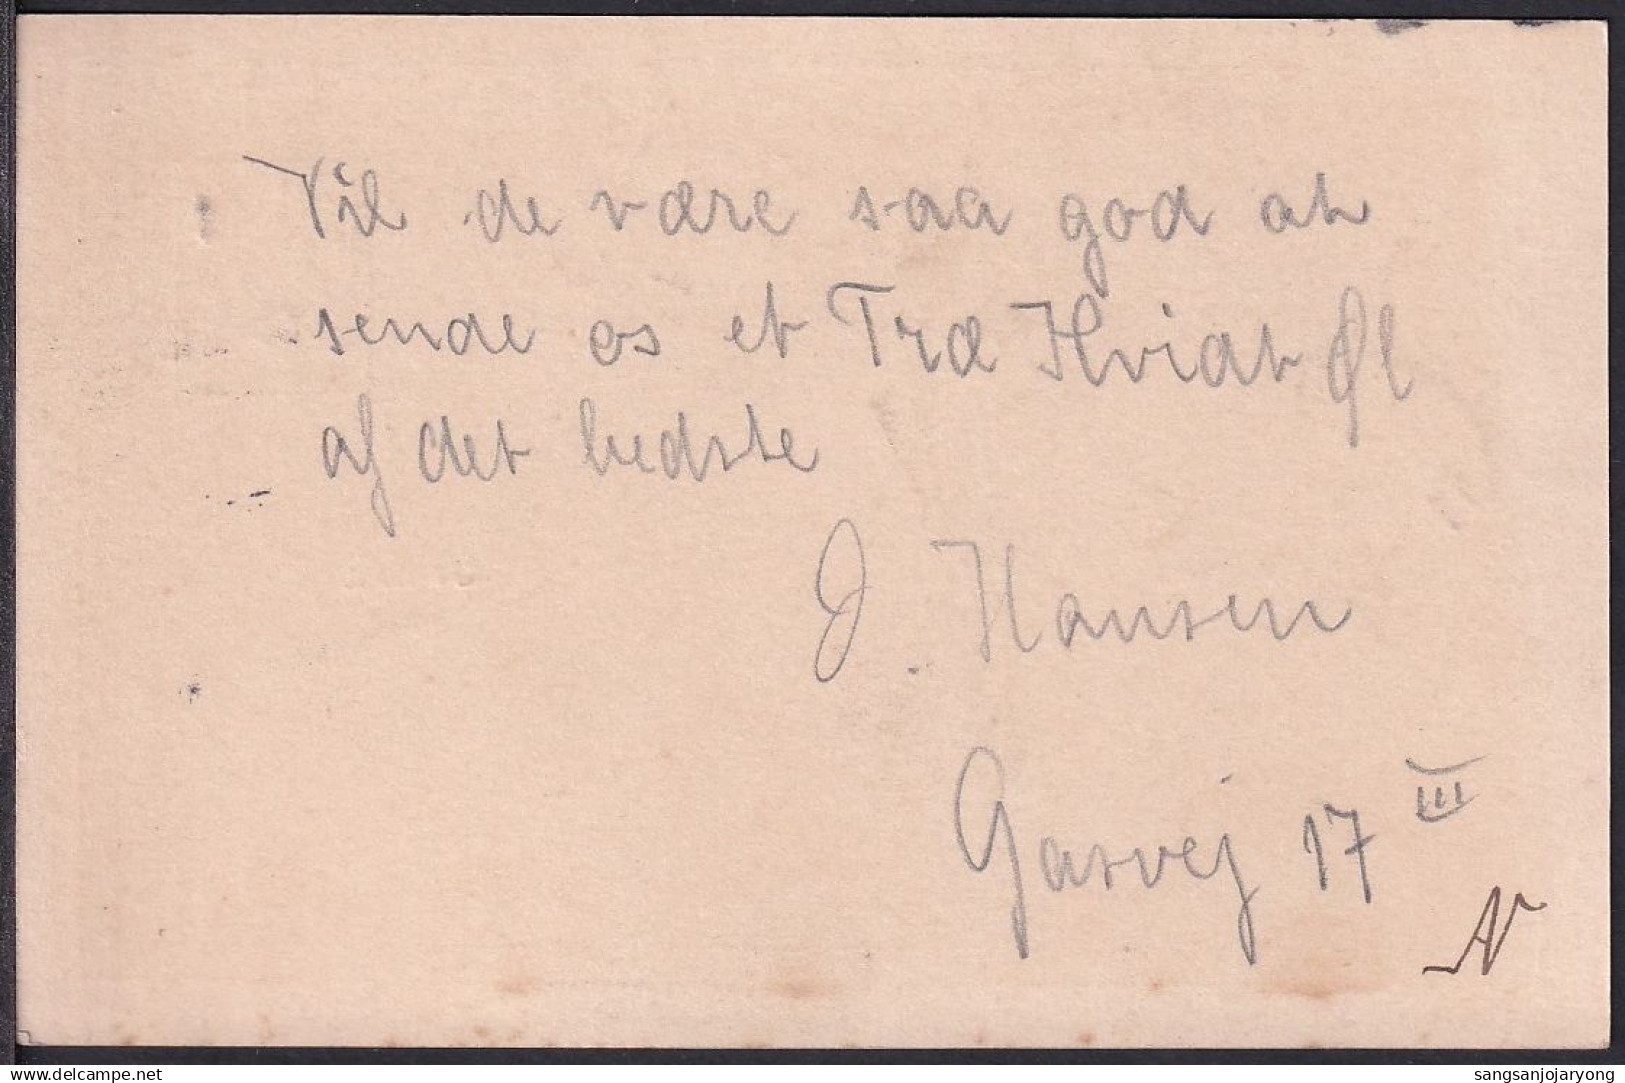 Vil de være saa god at
sende os et Træ Hvidt Øl
af det bedste
J. Hansen
Gasvej 17 III
N
delcampe.net
sangsanjojaryong